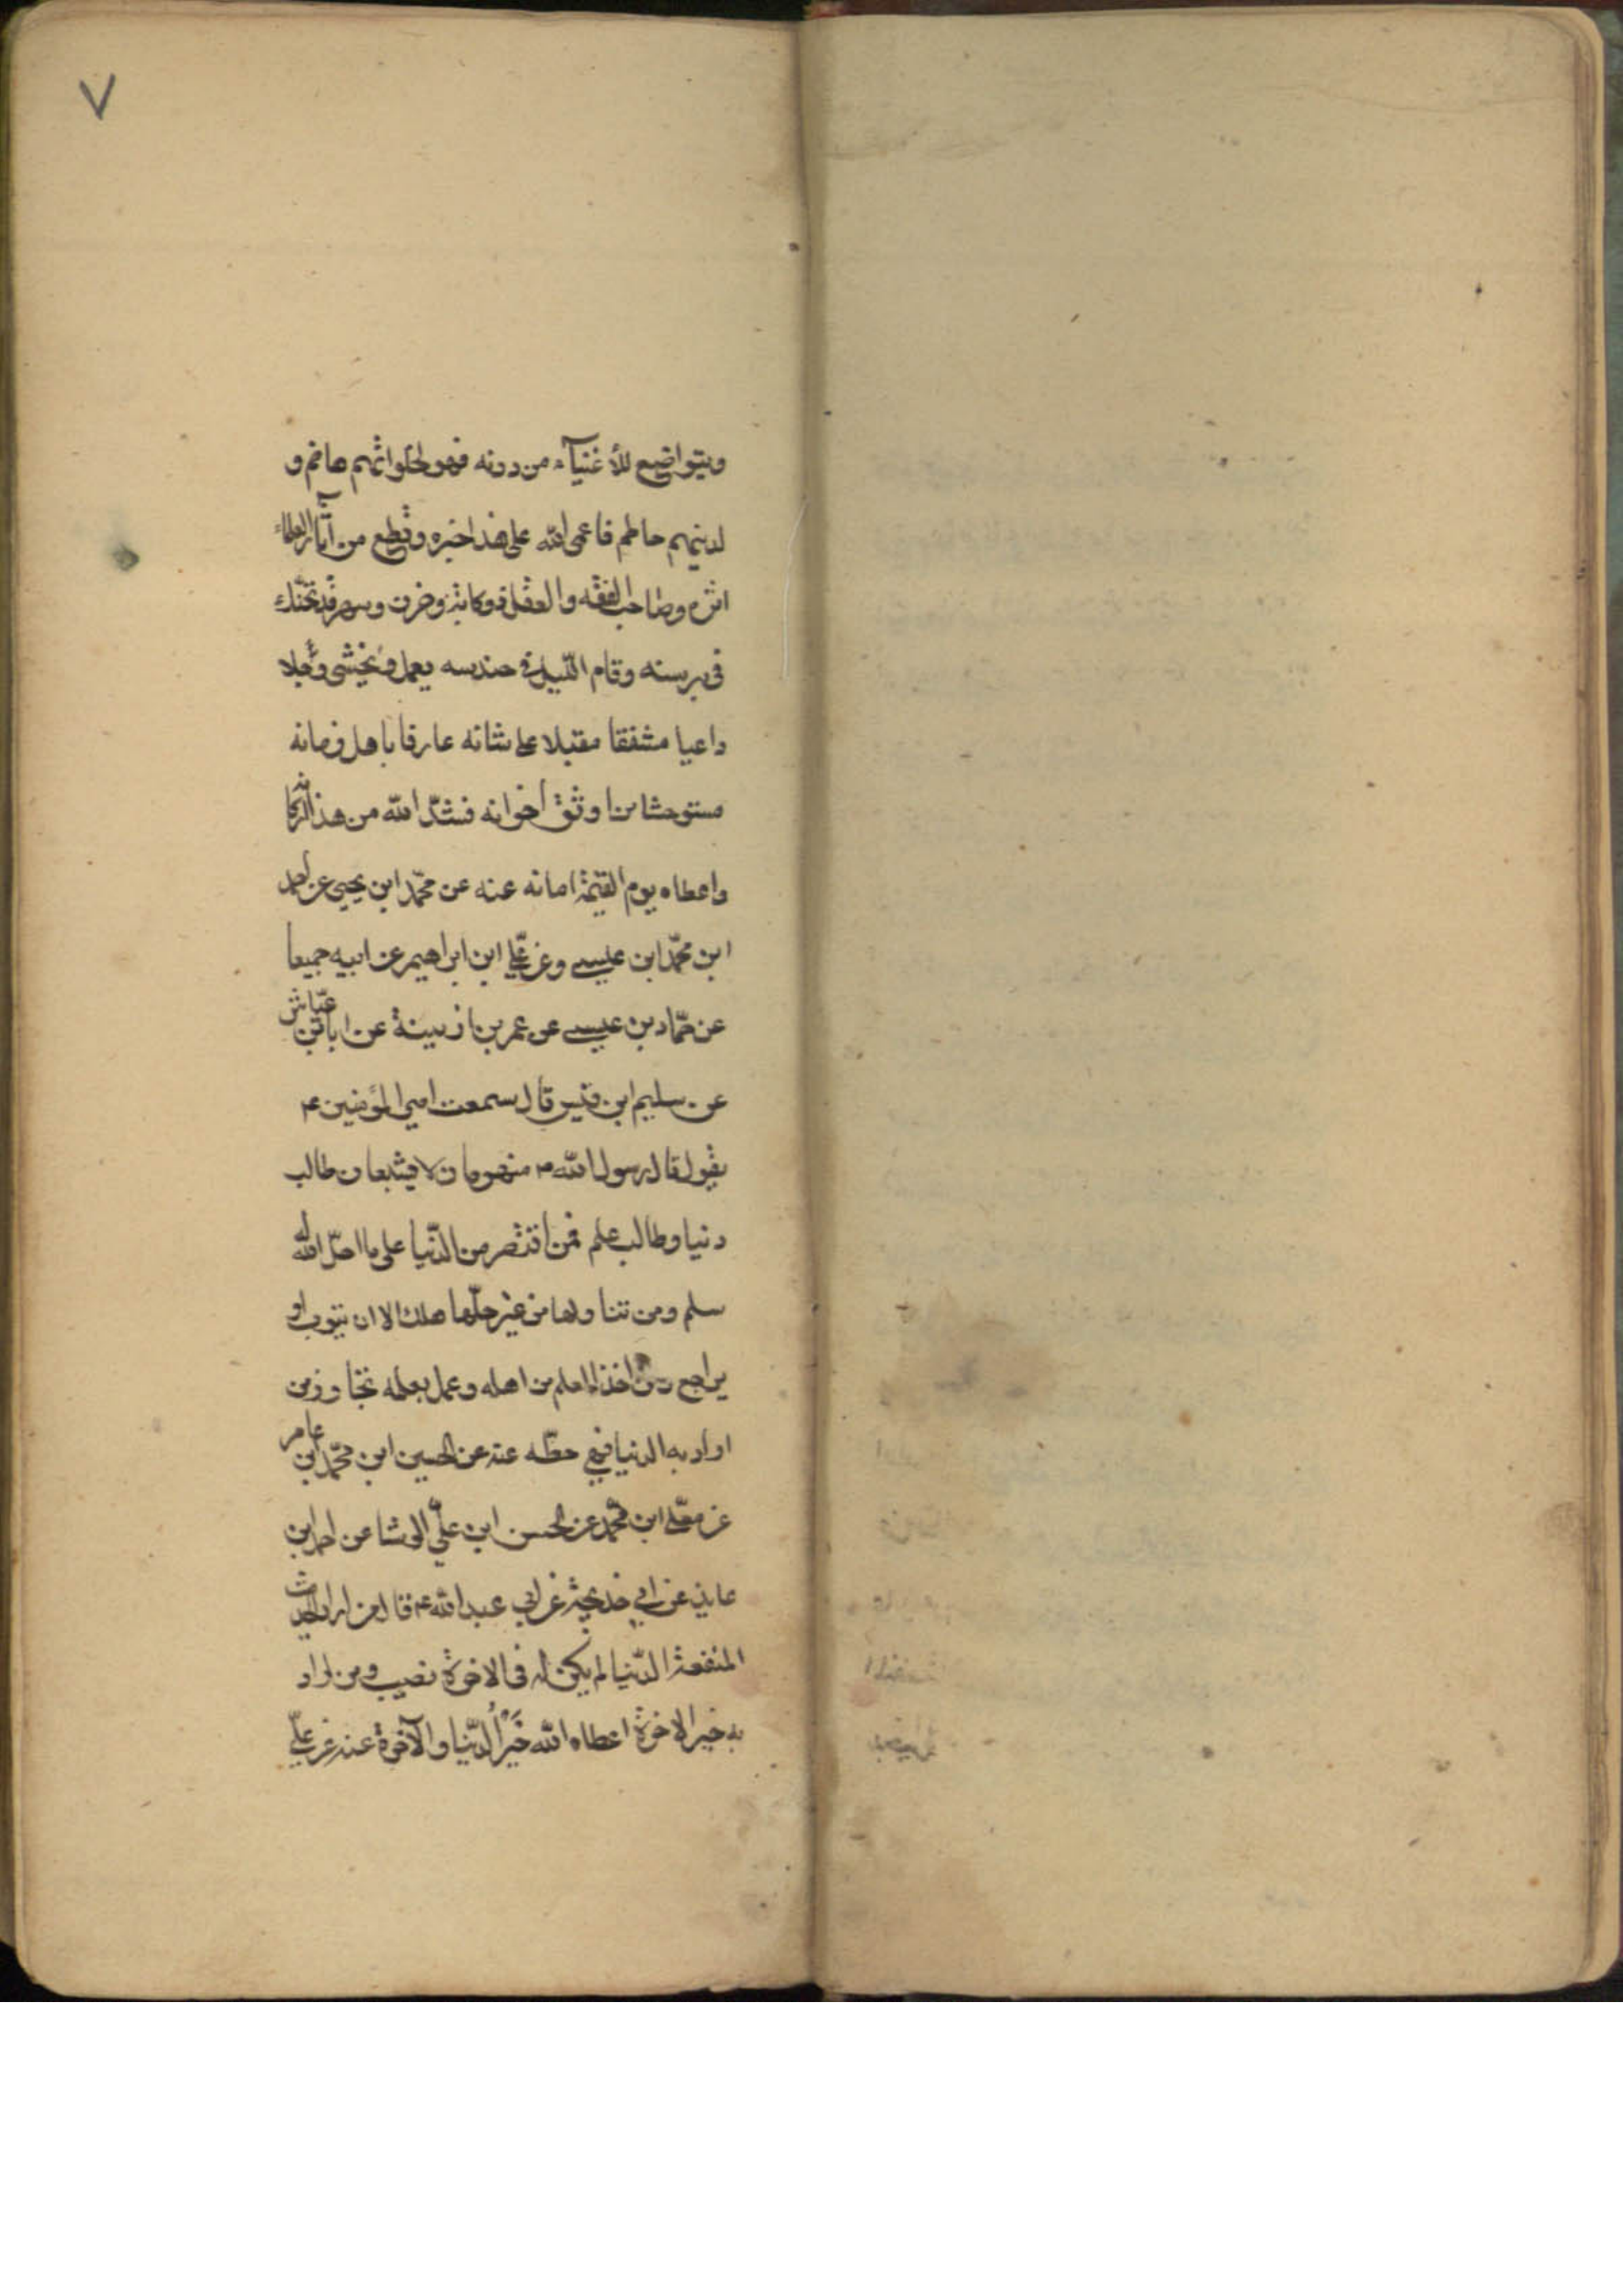 ٧
ويتواضع للأغنيآء من دونه فهو لحلوائهم هاضم و
لدينهم حاطم فاعمى الله على هذا خبره وقطع من آثار العلماء
اثره وصاحب الفقه والعقل ذو كابة وحزن وسهر قد تحنك
في برسنه وقام الليل في حندسه يعمل ويخشى وجلا
داعيا مشفقا مقبلا على شانه عارفا باهل زمانه
مستوحشا من اوثق اخوانه فشدّ الله من هذا اركانه
واعطاه يوم القيمة امانه عنه عن محمّد ابن يحيى عن احمد
ابن محمّد ابن عيسى وعن علي ابن ابراهيم عن ابيه جميعا
عن حمّاد بن عيسى عن عمر بن اذينة عن ابان بن عيّاش
عن سليم ابن قيس قال سمعت امير المؤمنين ع
يقول قال رسول الله ص منهومان لا يشبعان طالب
دنيا وطالب علم فمن اقتصر من الدّنيا على ما احلّ الله له
سلم ومن تناولها من غير حلّها هلك الا ان يتوب او
يراجع ومن اخذ العلم من اهله وعمل بعلمه نجا ومن
اراد به الدنيا فهي حظّه عنه عن الحسين ابن محمّد ابن عامر
عن معلّى ابن محمّد عن الحسن ابن عليّ الوشا عن احمد ابن
عايذ عن ابي خديجة عن ابي عبد الله ع قال من اراد الحديث
المنفعة الدّنيا لم يكن له في الاخرة نصيب ومن اراد
به خير الاخرة اعطاه الله خَيْرَ الدّنيا والآخرة عنه عن عليّ